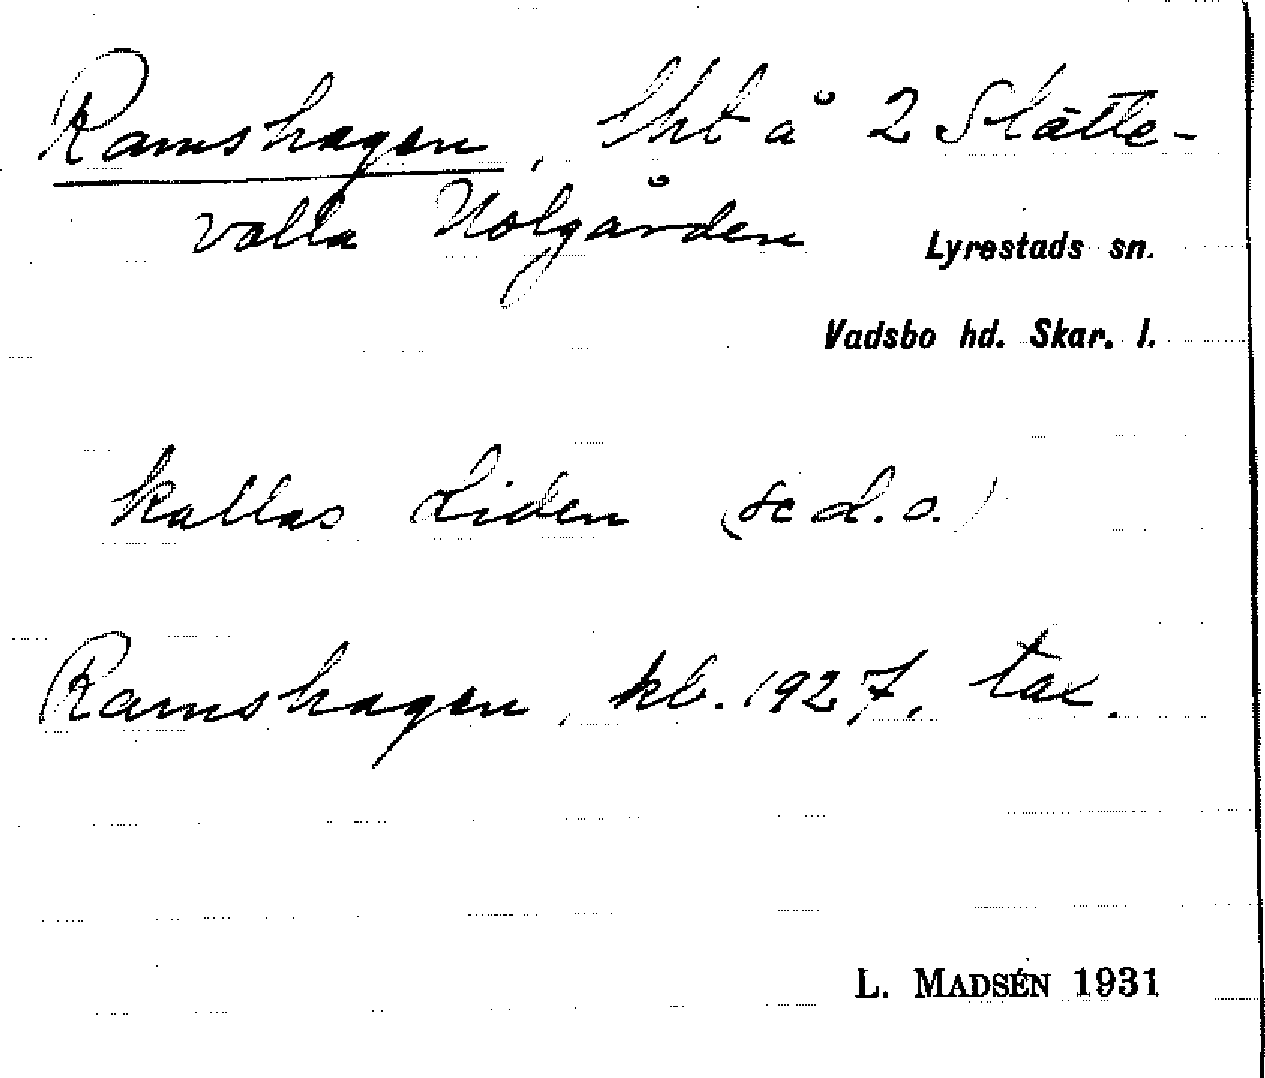 Ramshagen, lht å 2 Slätte-
valla Holgården
Lyrestads sn.
Vadsbo hd. Skar. l.
kallas Liden (se d. o.)
Ramshagen, kb. 1927, tax.
L. MADSÉN 1931